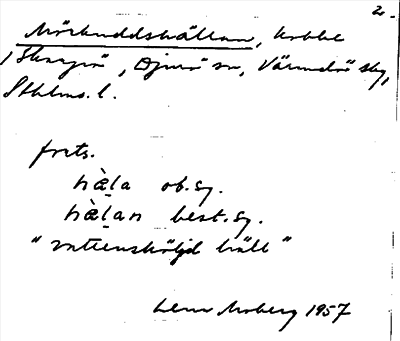 2.
Mörkuddshällan, kobbe
i Skurgö, Djurö sn, Värmdö skg,
Sthlms. l.
forts.
hæ̀la ob. sg.
hæ̀lan best. sg.
"vattensköljd häll"
Lena Moberg 1957